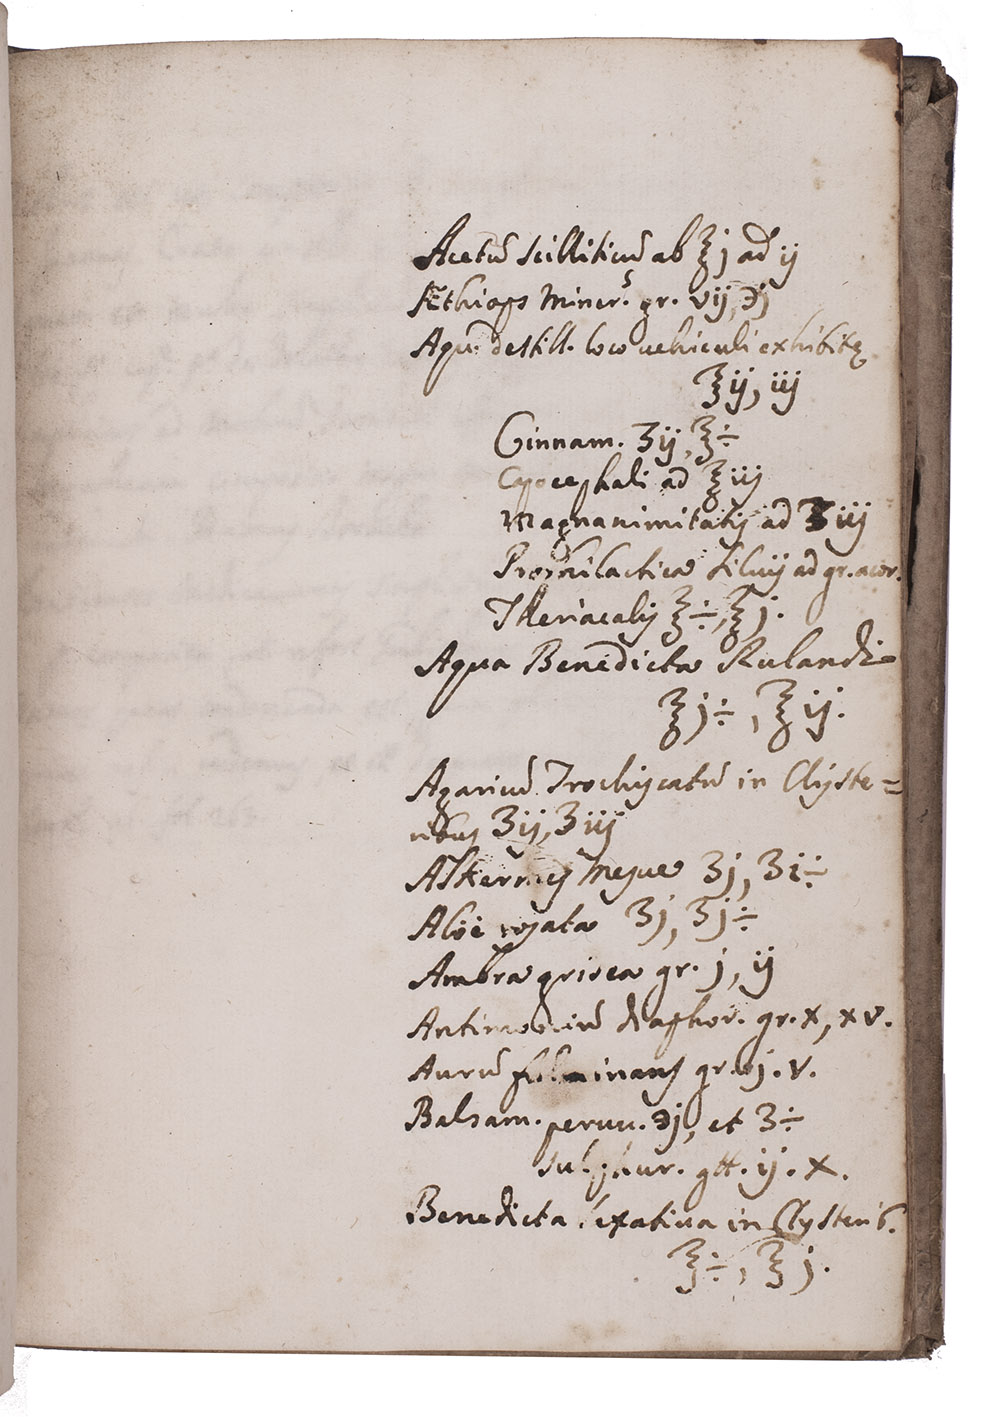 Acetū scilliticū ab ℥j ad ij
Æthiops Miner. gr. vij, ℈j
Aqu. destill. loco vehiculi exhibitę
℥ij, iij
Cinnam. ʒij, ℥÷
Cepocephali ad ℥iij
Magnanimitatis ad ʒiij
Prophilactica Silvij ad gr. acor.
Theriacalis ℥÷, ℥j.
Aqua Benedicta Rulandi
℥j÷, ℥ij.
Agaricū Trochiscatū in Clyste=
ribus ʒij, ʒiij
Alkermes Mesue ʒj, ʒi÷
Aloë rosata ʒj, ʒj÷
Ambra grisea gr. j, ij
Antimoniū diaphor. gr. x, xv.
Aurū fulminans gr. iij. v.
Balsam. peruv. ℈j, et ʒ÷
sulphur. gtt. ij. x.
Benedicta lexativa in Clysterib.
℥÷, ℥j.